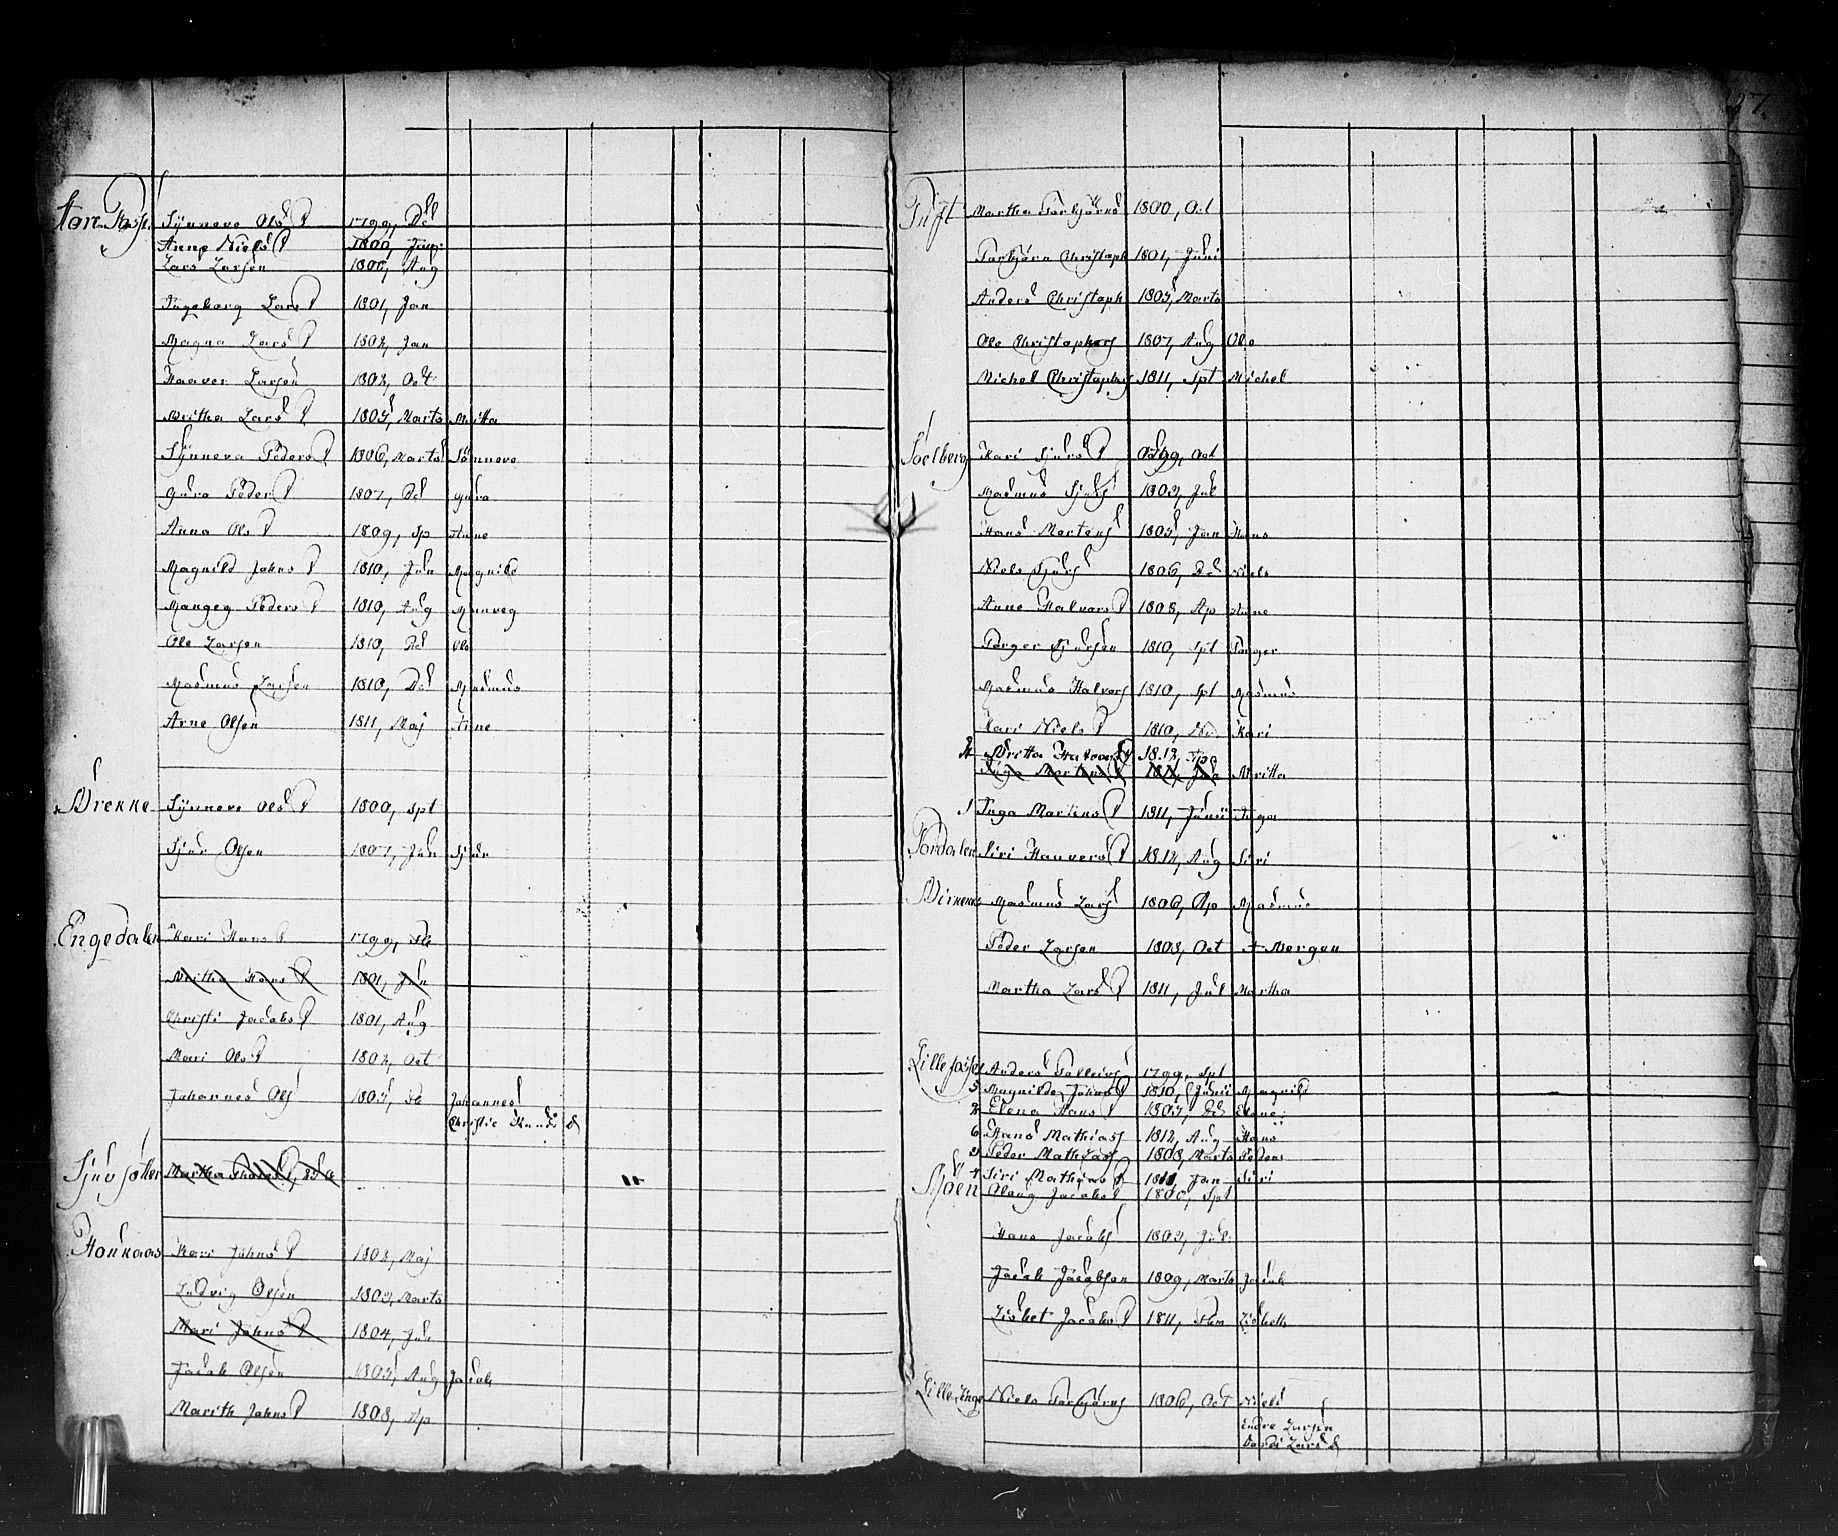 Synneve Ols D 1799, Dc
Anne Niels D 1800, Jun
Lars Larsen 1800, Aug
Ingeborg Lars D 1801, Jan
Magna Lars D 1802, Jan
Haaver Larsen 1802, Oct
Britha Lars D 1805, Marts Britta
Synneva Peders D 1806, Marts Sönneve
Gura Peder D 1807, Dc Gura
Anna Ols D 1809, Sp Anne
Magnild Johns D 1810, Jun Magnild
Peders D 1810, Aug
Ole Larsen 1810, Dc Ole
Rasmus Larsen 1810, Dc Rasmus
Arne Olsen 1811, Maj Arne
Brekke Synneve Ols D 1800, Spt
Sjur Olsen 1807, Jun Sjur
Engedalen Kari Hans D 1799, Fb
Britha Hans D 1801, Jun
Christi Jacobs D 1801, Aug
Mari Ols D 1802, Oct
Johannes Ols 1805, Fb Johannes
Christie Knuds D
Martha
Kari Johns D 1803, Maj
Ludvig Olsen 1803, Marts
Mari Johns D 1804, Jun
Jacob Olsen 1805, Aug Jacob
Marith Johns D 1808, Ap
57.
Tuft Martha Torbjörns 1800, Oct
Torbjörn Christoph 1801, Juni
Anders Christoph 1803, Marts
Ole Christophers 1807, Aug Ole
Michel Christophers 1811, Spt Michel
Soelberg Kari Sjurs D 1799, Oct
Rasmus Sjurs 1803, Jul
Hans Mortens 1805, Jan Hans
Niels Sjurs 1806, Dc Niels
Anne Halvors D 1808, Ap Anne
Torger Sjursen 1810, Spt Torger
Rasmus Halvors 1810, Spt Rasmus
Kari Niels D 1810, Kari
Britta 1812, Ap
Inga Martens D Britta
1 Inga Martens D 1811, Junii Inga
Nordalen Siri Haavers D 1812, Aug Siri
Rasmus Lars 1806, Ap Rasmus
Peder Larsen 1808, Oct + Bergen
Martha Lars D 1811, Jul Martha
Anders 1799, Spt
5 Magnilde Johns D 1810, Junii Magnild
2 Elena Hans D 1807, Dc Elene
6 Hans Mathias 1812, Aug Hans
3 Peder Mathias 1808, Marts Peder
4 Siri Mathias D 1811, Jan Siri
Jacobs 1800, Spt
Hans Jacobs 1803, Jul
Jacob Jacobsen 1809, Marts Jacob
Lisbet Jacobs D 1811, Lisbeth
Lille Enge Niels Torbjörns 1806, Oct Niels
Endre Larsen
Lars D